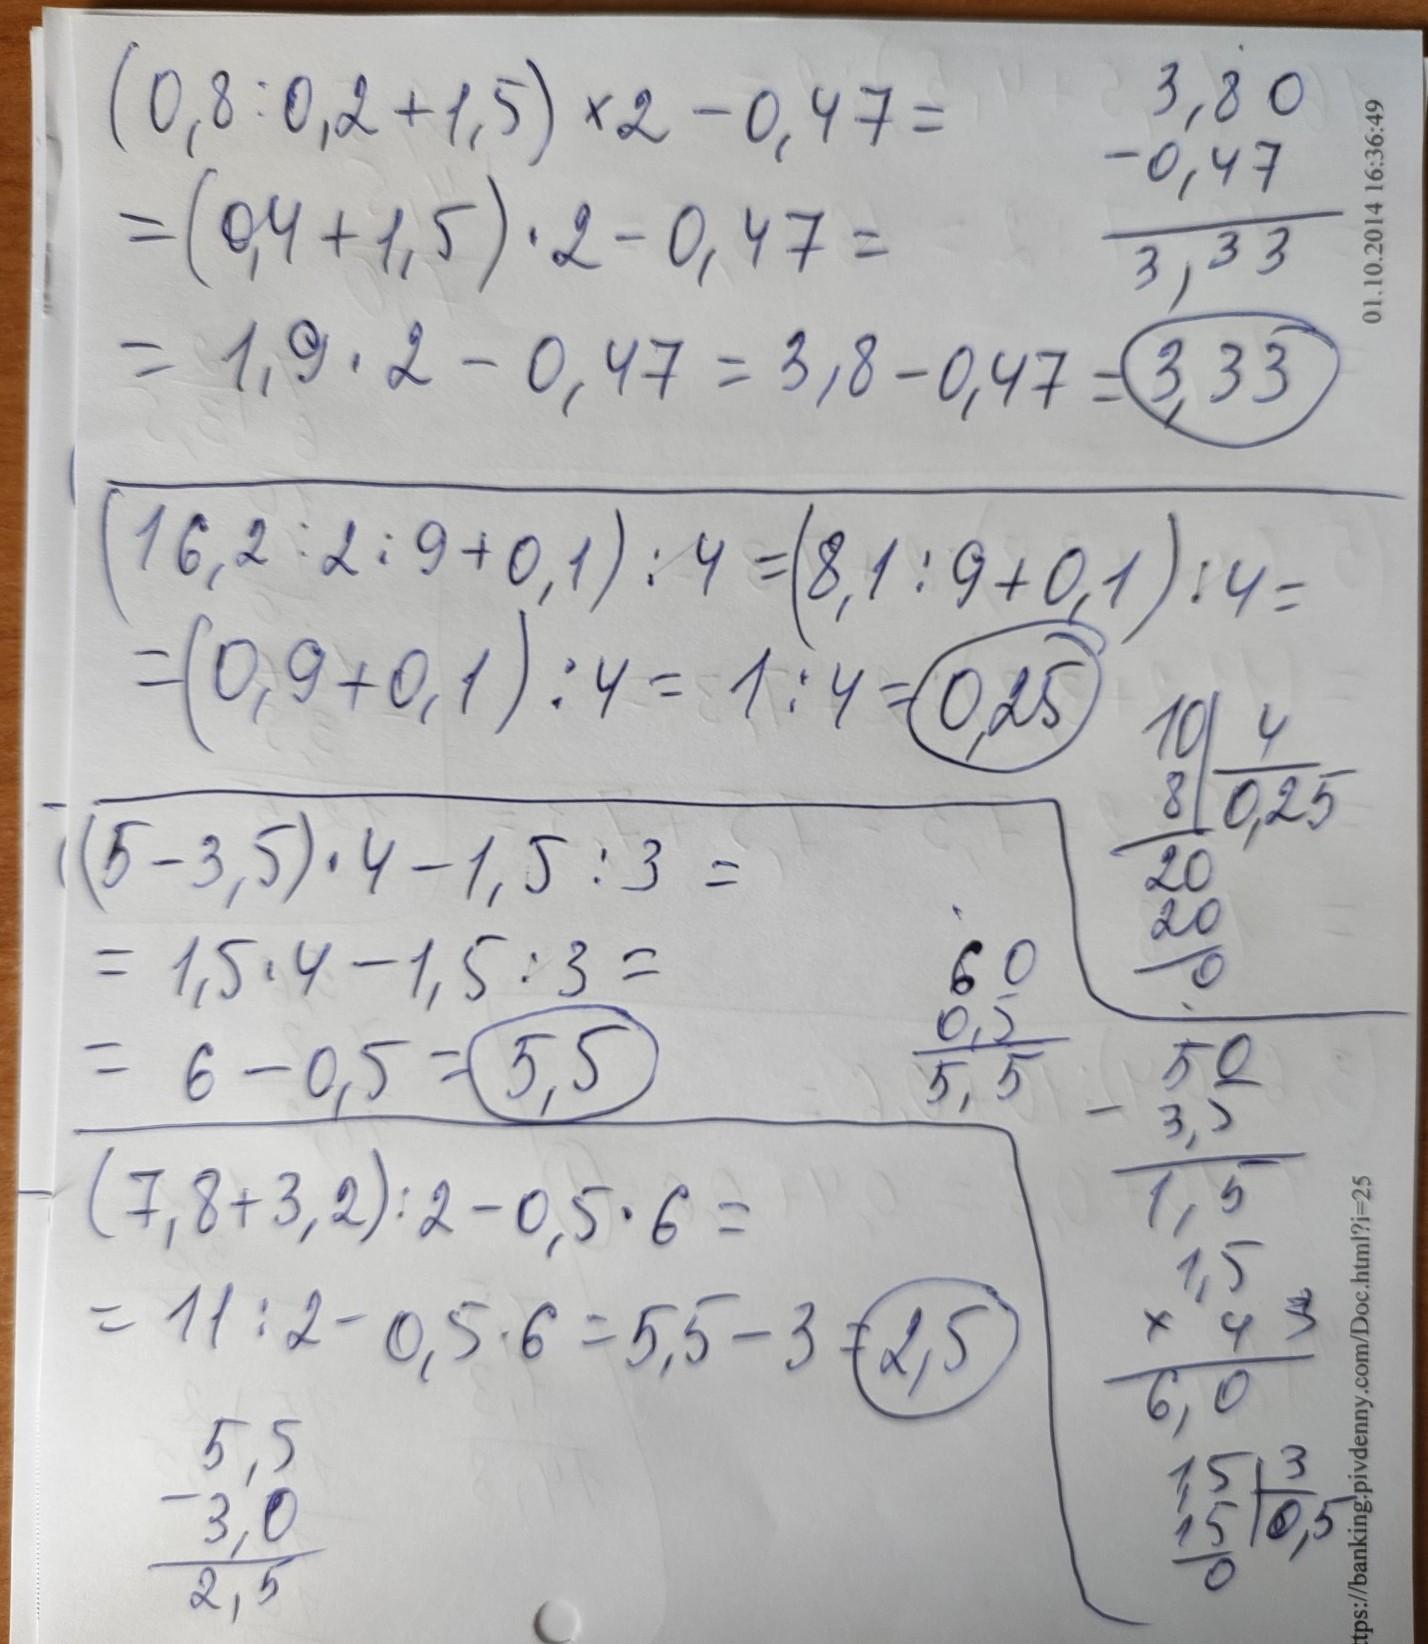 (0,8:0,2+1,5)×2-0,47=
=(0,4+1,5)·2-0,47=
=1,9·2-0,47=3,8-0,47=3,33
3,80
-0,47
3,33
01.10.2014 16:36:49
(16,2:2:9+0,1):4=(8,1:9+0,1):4=
=(0,9+0,1):4=1:4=0,25
10|4
8|0,25
20
20
0
(5-3,5)·4-1,5:3=
=1,5·4-1,5:3=
=6-0,5=5,5
60
0,5
5,5
50
-3,5
1,5
1,5
×4
6,0
1,5|3
15|0,5
0
(7,8+3,2):2-0,5·6=
=11:2-0,5·6=5,5-3=2,5
5,5
-3,0
2,5
tps://banking.pivdenny.com/Doc.html?i=25